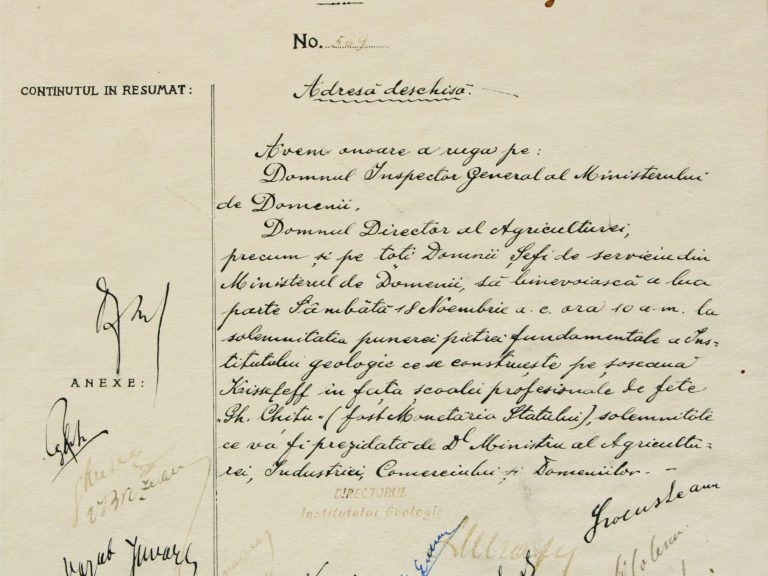 No. 507
CONTINUTUL IN RESUMAT:
Adresă deschisă.
Avem onoare a ruga pe:
Domnul Inspector General al Ministerului
de Domenii,
Domnul Director al Agriculturei,
precum și pe toti Domnii Șefi de serviciu din
Ministerul de Domenii, să binevoiască a lua
parte Sâmbătă 18 Noembrie a. c. ora 10 a.m. la
solemnitatea punerei pietrei fundamentale a Ins-
titutului geologic ce se construește pe șoseaua
Kisseleff in fața școalei profesionale de fete
"Gh. Chițu" (fost Monetăria Statului), solemnitate
ce va fi prezidată de Dl Ministru al Agricultu-
rei, Industriei, Comerciului și Domeniilor. -
ANEXE:
DIRECTORUL
Institutului Geologic